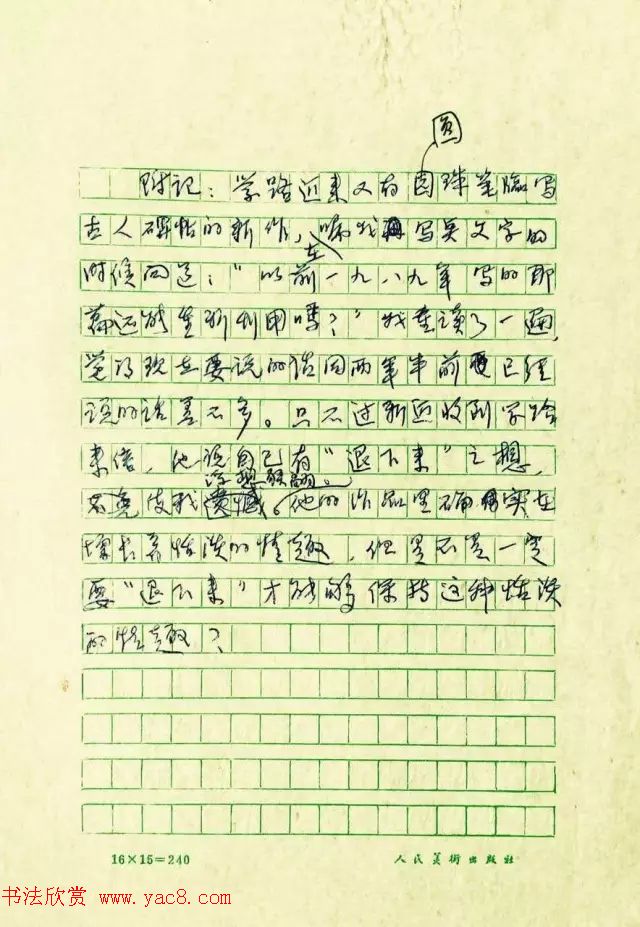 圆
附记：学路近来又有圆珠笔临写
古人碑帖的新作，嘱我写英文字的
在
时候问道："以前一九八九年写的那
篇还能重新利用吗？"我重读了一遍，
觉得现在要说的话同两年半前已经
说的话差不多。只不过新近收到学路
来信，他说自己有"退下来"之想，
不免使我遗憾。他的作品里确实在
增长着恬淡的情趣，但是不是一定
要"退下来"才能够保持这种恬淡
的情趣？
16×15=240
人民美術出版社
书法欣赏 www.yac8.com